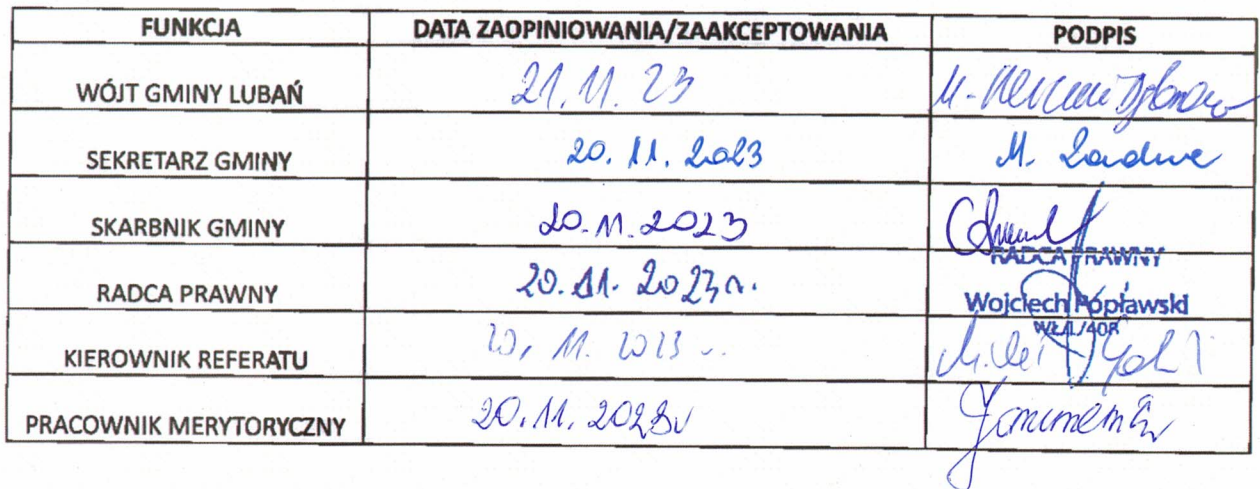 FUNKCJA DATA ZAOPINIOWANIA/ZAAKCEPTOWANIA PODPIS
WÓJT GMINY LUBAŃ 21.11.23
SEKRETARZ GMINY 20.11.2023 M.
SKARBNIK GMINY 20.11.2023
RADCA PRAWNY
RADCA PRAWNY 20.11.2023r.
Wojciech Popławski
KIEROWNIK REFERATU 20.11.2023r.
PRACOWNIK MERYTORYCZNY 20.11.2023r